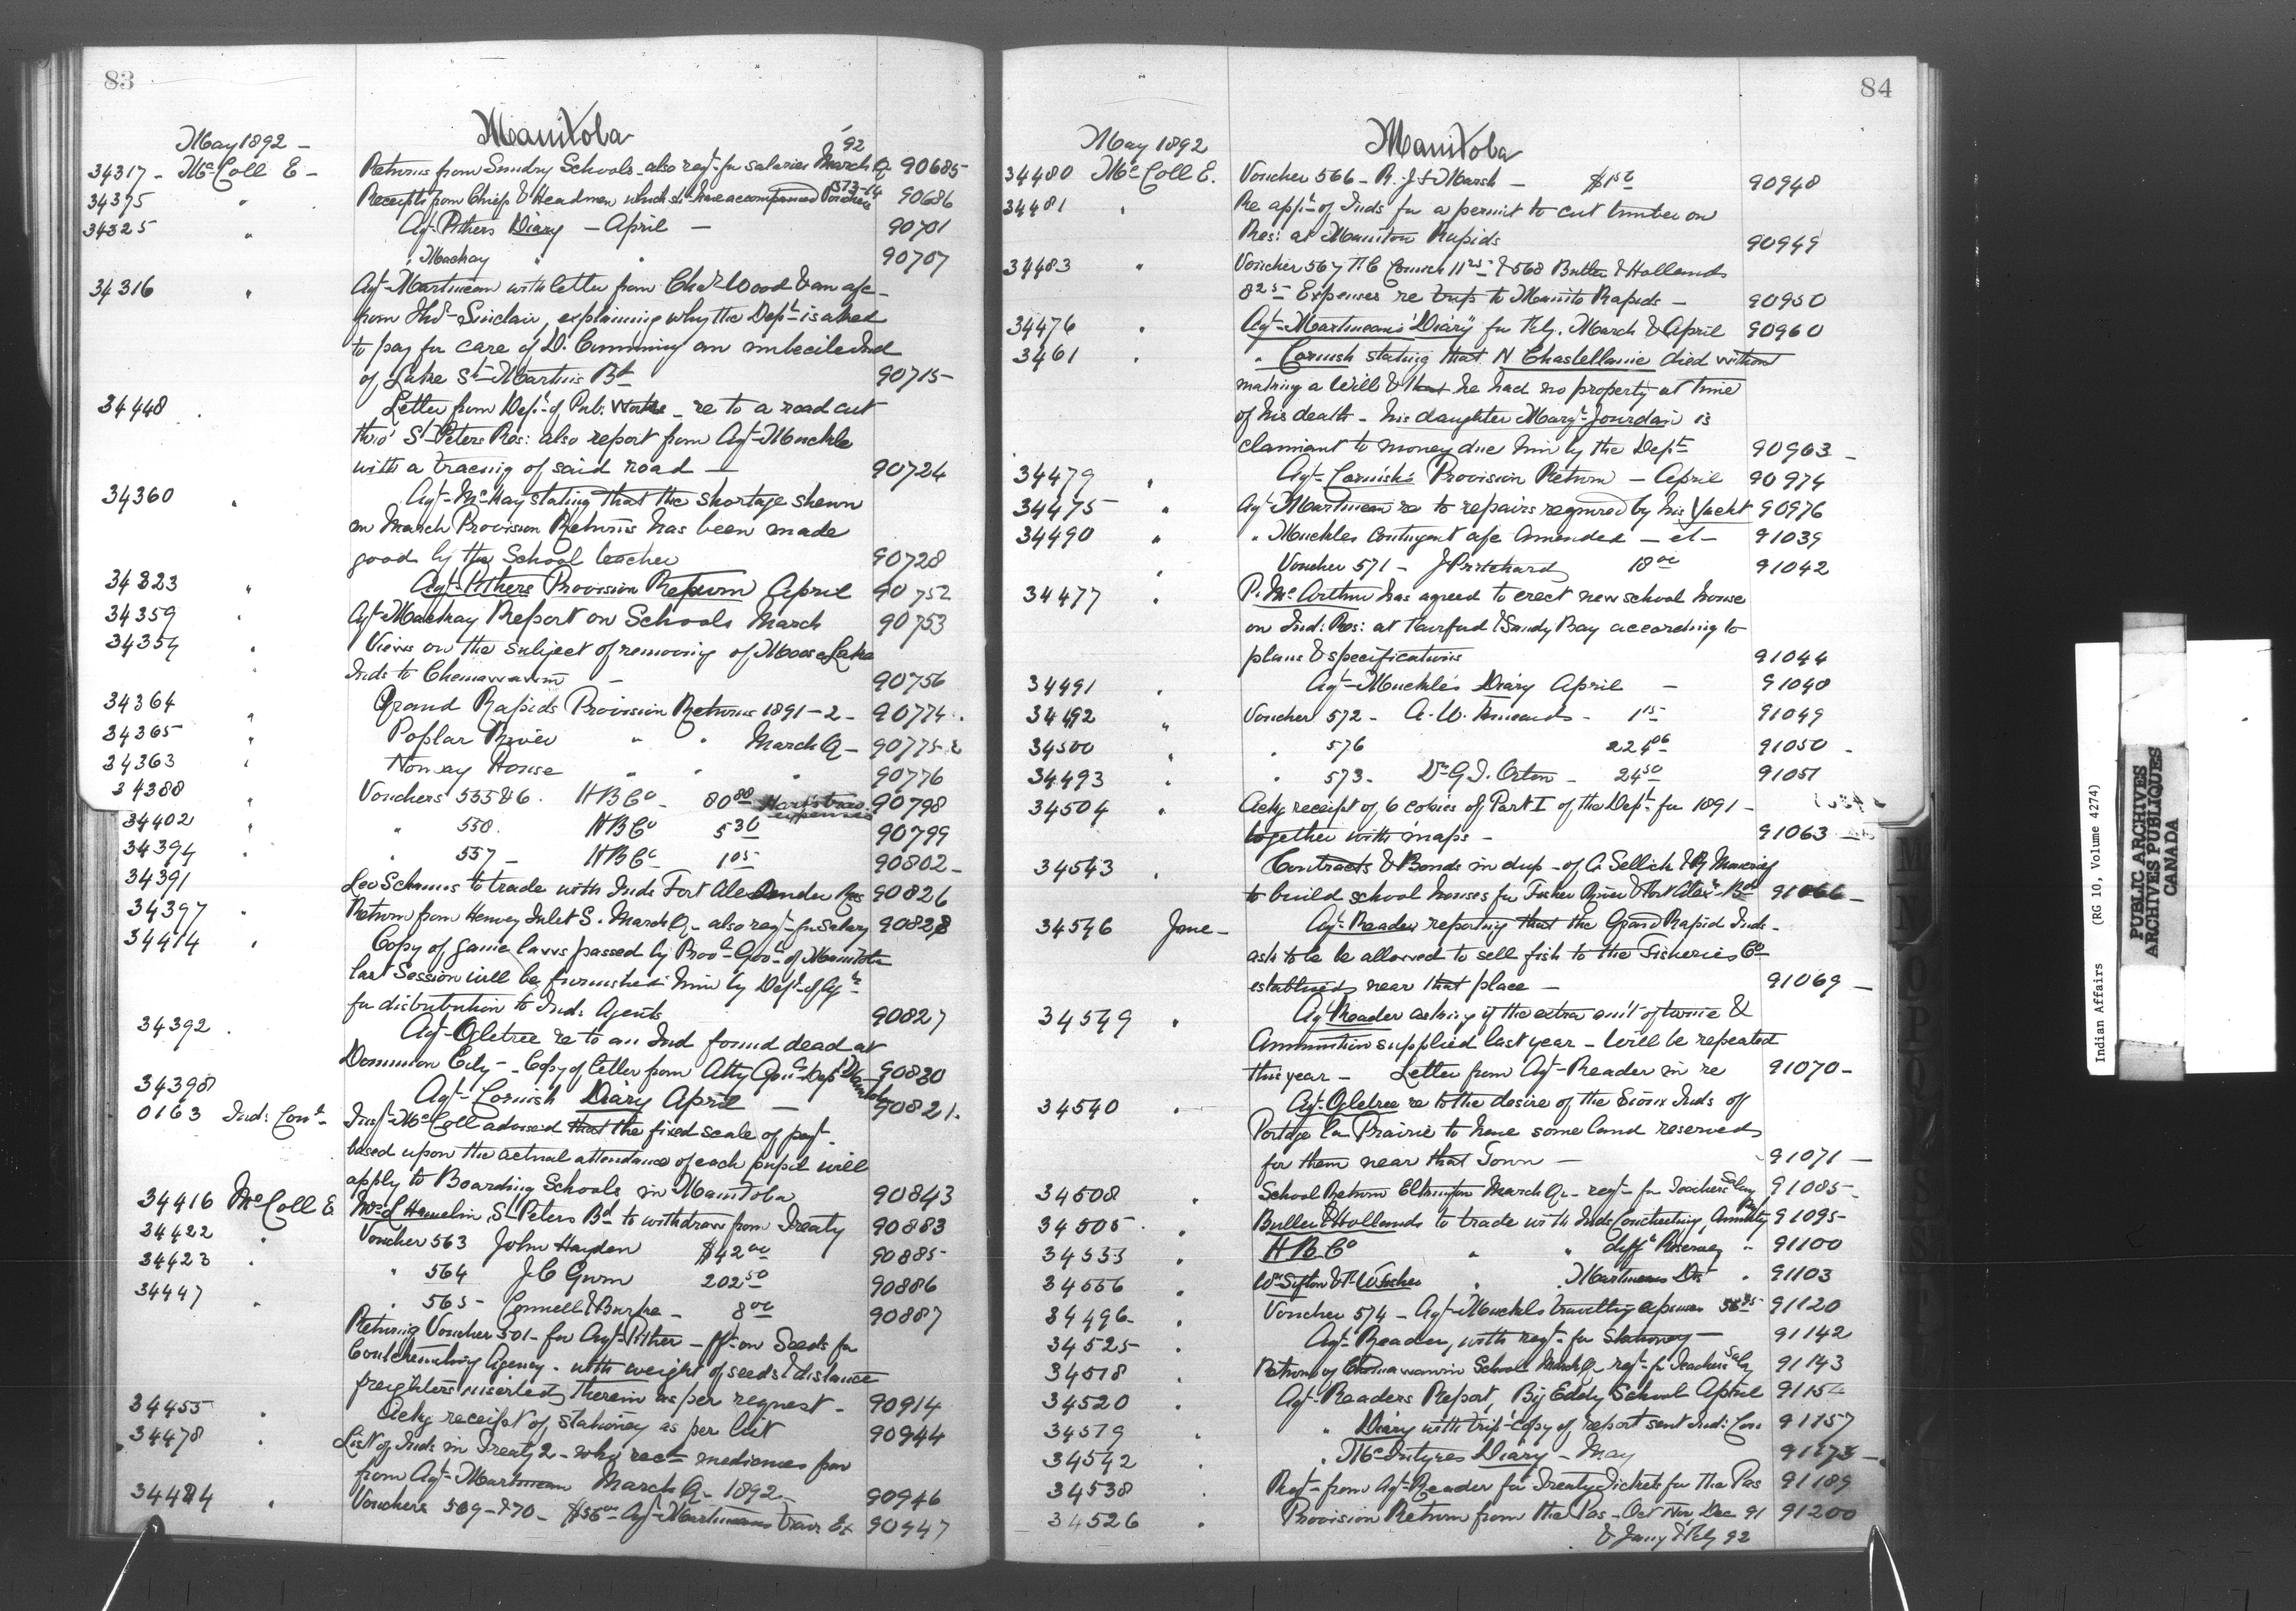 83
Manitoba
May 1892 -
'92
34317 - McColl E - Returns from Sundry Schools - also reqt for salaries March Q 90685
34375 " Receipts from Chiefs & Headmen which shd have accompanied Vouchers 573-14 90686
34325 " Agt Pithers Diary - April - 90701
" Mackay " " 90707
34316 " Agt Martineau with letter from Chas Wood & an a/c
from Thos Sinclair, explaining why the Dept is asked
to pay for care of D. Cumming an imbecile Ind
of Lake St Martins Bd 90715
34448 . Letter from Dept of Pub: Works - re to a road cut
thro' St Peters Res: also report from Agt Muckle
with a tracing of said road - 90724
34360 " Agt McKay stating that the shortage shewn
in March Provision Returns has been made
good by the School teacher 90728
34323 " Agt Pithers Provision Return April 90752
34359 " Agt Mackay Report on Schools March 90753
34354 " Views on the subject of removing of Moose Lake
Inds to Chemawawin - 90756
34364 " Grand Rapids Provision Returns 1891-2 - 90774
34365 " Poplar River " " March Q - 90775
34363 " Norway House " " " 90776
34388 " Vouchers 535 & 6. HBCo - 80 88 90798
34402 " " 538. HBCo 5 36 90799
34394 " " 537 - HBCo 1 05 90802 -
34391 Leo Schamus to trade with Inds Fort Alexander Res 90826
34397 " Return from Henvey Inlet S. March Q - also reqt for Salary 90828
34414 " Copy of game laws passed by Provl Govt of Manitoba
last Session will be furnished him by Dept of Agre
for distribution to Ind: Agents 90827
34392 . Agt Ogletree re to an Ind found dead at
Dominion City - Copy of letter from Atty Genls Dept Manitoba 90830
34398 Agt Cornish Diary April - 90821.
0163 Ind: Comr Inspr McColl advised that the fixed scale of payt
based upon the actual attendance of each pupil will
apply to Boarding Schools in Manitoba 90843
34416 McColl E Mrs L Hamelin St Peters Bd to withdraw from Treaty 90883
34422 " Voucher 563 John Hayden $42 00 90885
34423 " " 564 J.C Gunn 202 50 90886
34447 " " 565 - Connell & Burke - 8 00 90887
Returning Voucher 501 - for Agt Pither - frt on Seeds for
Coutcheeching Agency - with weight of seeds & distance
freighters inserted therein as per request - 90914
34455 " Ackg receipt of stationery as per list 90944
34478 " List of Inds in Treaty 2 - who recd medicines
from Agt Martineau March Q - 1892 - 90946
34484 " Vouchers 569 - & 70 - $56 00 Agt Martineaus trav. Ex 90947
84
Manitoba
May 1892
34480 McColl E. Voucher 566 - R. J. S. Marsh - $1 50 90948
34481 " Re appln of Inds for a permit to cut timber on
Res: at Manitou Rapids 90949
34483 " Voucher 567 F.C Cornish 11 25 & 568 Butler & Hollands
8 25 Expenses re trip to Manito Rapids - 90950
34476 " Agt Martineau's "Diary" for Feby. March & April 90960
3461 " " Cornish stating that N Chastellanie died without
making a will & that he had no property at time
of his death - his daughter Margt Jourdain is
claimant to money due him by the Dept 90963 -
34479 " Agt Cornish's Provision Return - April 90974
34475 " Agt Martineau re to repairs required by his Yacht 90976
34490 " " Muckles contingent a/c amended - 91039
" Voucher 571 - J Pritchard 18 00 91042
34477 " P. McArthur has agreed to erect new school house
on Ind: Res: at Fairford & Sandy Bay according to
plans & specifications 91044
34491 " Agt Muckle's Diary April - 91048
34492 " Voucher 572 - 1 15 91049
34500 " " 576 224 06 91050 -
34493 " " 573 - Dr G. T. Orton - 24 50 91051
34504 " Ackg receipt of 6 copies of Part I of the Dept for 1891 -
together with maps - 91063
34543 . Contracts & Bonds in dup - of A Sellick &
to build school houses for Fisher River & Fort Alexr Bds 91066 -
34546 June - Agt Reader reporting that the Grand Rapid Inds
ask to be be allowed to sell fish to the Fisheries Co
established near that place - 91069 -
34549 " Agt Reader asking if the extra amt of twine &
Ammunition supplied last year - will be repeated
this year - Letter from Agt Reader in re 91070 -
34540 " Agt Ogletree re to the desire of the Sioux Inds of
Portage la Prairie to have some land reserved
for them near that Town - 91071 -
34508 " School Return Elkhington March Q - reqt for Teachers Salary 91085 -
34505 " Butler & Hollands to trade with Inds Coutcheeching, Annuity Pay 91095
34533 " H B Co " " difft Reserves " 91100
34556 " Wm Sifton & " Martineaus Dis " 91103
34496 - " Voucher 574 - Agt Muckles travelling expenses 91120
34525 - " Agt Reader, with reqt for Stationery - 91142
34518 " Return of Chemawawin School March Q - reqt for Teachers Saly 91143
34520 " Agt Readers Report, Big Eddy School April 91154
34519 " " Diary with trip copy of report sent Ind: Com 91157
34542 " " McIntyres Diary - May 91173 -
34538 " Reqt from Agt Reader for Treaty Tickets for the Pas 91189
34526 " Provision Return from the Pas - Oct Nov, Dec 91 91200
& Jany & Feby 92
Indian Affairs (RG 10, Volume 4274)
PUBLIC ARCHIVES
ARCHIVES PUBLIQUES
CANADA